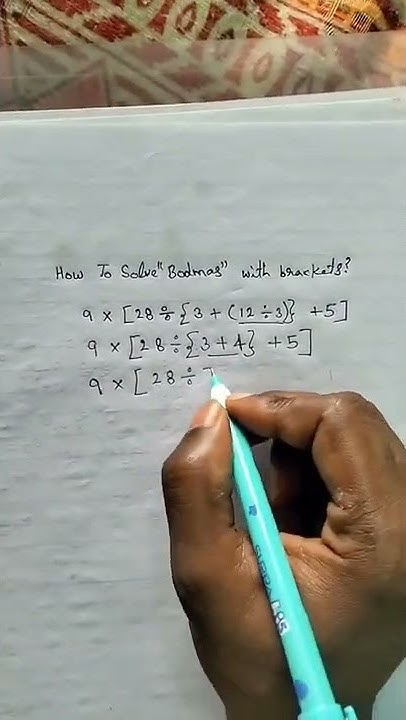 How To Solve "Bodmas" with brackets?
9 × [28 ÷ {3 + (12 ÷ 3)} + 5]
9 × [28 ÷ {3 + 4} + 5]
9 × [28 ÷ 7